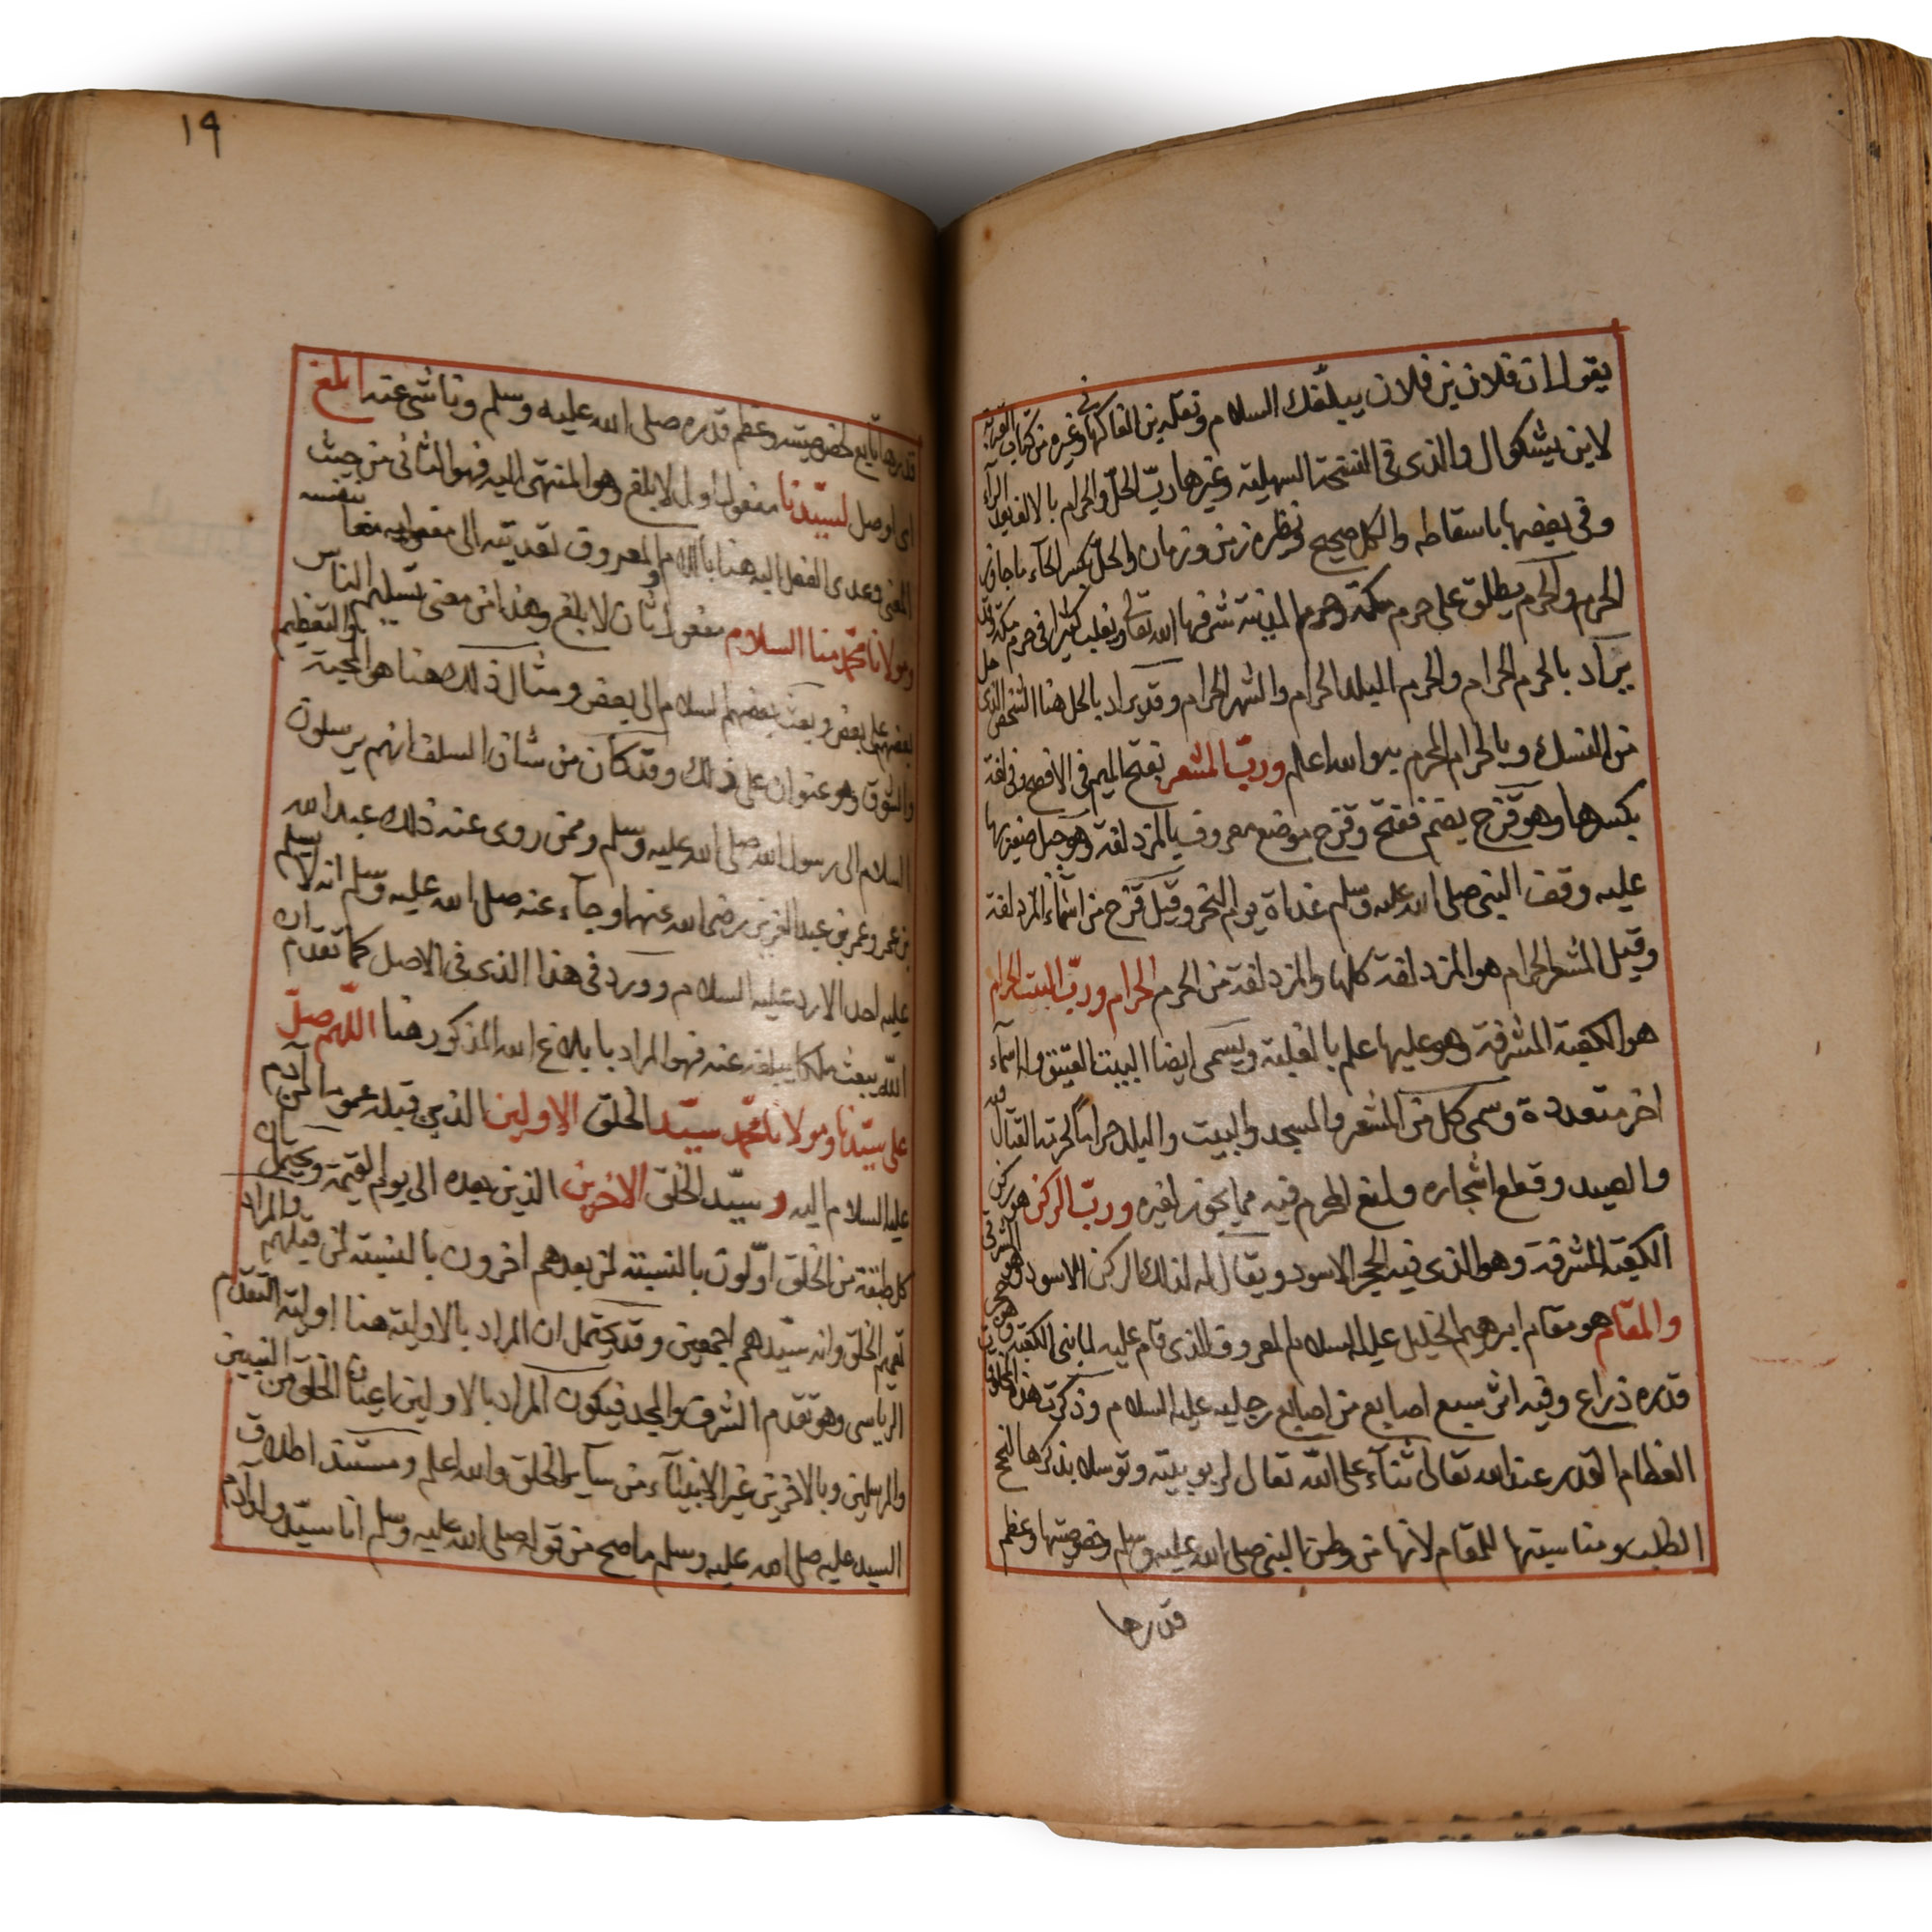 يقول ان فلان بن فلان يبلّغك السلام ونقله بن الفاكهاني وغيره من كتاب القربة
لابن بشكوال والذى فى النسخة السهلية وغيرها ربّ الحلّ والحرام بالالف بعد الرآء
وفى بعضها باسقاطه والكل صحيح نظره زمن وزمان والحلّ بكسر الحآء ما جاوز
الحرم والحرم يطلق على حرم مكة وحرم المدينة شرفها الله تعالى ويغلب كثيرا فى حرم مكة وقد
يراد بالحرم الحرام والحرم البلد الحرام والشهر الحرام وقد يراد بالحل هنا الشخص الذى حل
من النسك وبالحرام المحرم به والله اعلم وربّ المشعر بفتح الميم فى الافصح وفى لغة
بكسرها وهو قزح بضم ففتح وقزح موضع معروف بالمزدلفة وهو جبل صغير بها
عليه وقف النبى صلى الله عليه وسلم غداة يوم النحر وقيل قزح من اسماء المزدلفة
وقيل المشعر الحرام هو المزدلفة كلها والمزدلفة من الحرم الحرام وربّ البيت الحرام
هو الكعبة المشرفة وهو عليها علم بالغلبة ويسمى ايضا البيت العتيق وله اسمآء
اخر متعددة وسمى كل من المشعر والمسجد والبيت والبلد حراما لحرمة القتال فيه
والصيد وقطع اشجاره ولمنع المحرم فيه مما يجوز لغيره وربّ الركن هو ركن
الكعبة المشرفة وهو الذى فيه الحجر الاسود ويقال له لذلك الركن الاسود
والمقام هو مقام ابرهيم الخليل عليه السلام المعروف الذى قام عليه لما بنى الكعبة
قدره ذراع وفيه اثر سبع اصابع من اصابع رجليه عليه السلام وذكرت هذه
العظام القدر عند الله تعالى ثنآء على الله تعالى لربوبيته وتوسلا بذكرها النجح
الطلب ومناسبتها للمقام لانها من وطن النبى صلى الله عليه وسلم وخصوصيتها وعظم
قدرها
١٩
قدرها تابع لخصوصيته وعظم قدره صلى الله عليه وسلم وناشئ عنه ابلغ
اى اوصل لسيّدنا مفعول اول لابلغ وهو المنتهى اليه فهو الثانى من حيث
المعنى وعدى الفعل اليه هنا باللام والمعروف تعديته الى مفعوليه معا بنفسه
ومولانا محمّد منا السلام مفعول ثان لابلغ وهذا من معنى تسليم الناس
بعضهم على بعض وبعث بعضهم السلام الى بعض ومثال ذلك هنا هو المحبة والتعظيم
والشوق وهو عنوان على ذلك وقد كان من شان السلف انهم يرسلون
السلام الى رسول الله صلى الله عليه وسلم وممن روى عنه ذلك عبد الله
بن عمر وعمر بن عبد العزيز رضى الله عنهما وجآء عنه صلى الله عليه وسلم انه لا يسلم
عليه احد الا رد عليه السلام وورد فى هذا الذى فى الاصل كما تقدم ان
الله يبعث ملكا يبلغه عنه فهو المراد بابلاغ الله المذكور هنا اللّهم صلّ
على سيّدنا ومولانا محمّد سيّد الخلق الاولين الذين قبله عموما من آدم
عليه السلام اليه و سيّد الخلق الاخرين الذين بعده الى يوم القيمة ويحتمل ان
كل طبقة من الخلق اوّلون بالنسبة لمن بعدهم اخرون بالنسبة لمن قبلهم والمراد
تعميم الخلق وانه سيّدهم اجمعين وقد يحتمل ان المراد بالاولية هنا اولية التقدّم
الرياسى وهو تقدم الشرف والمجد فيكون المراد بالاولين اعيان الخلق من النبيين
والمرسلين وبالاخرين غير الانبيآء من ساير الخلق والله اعلم ومستند اطلاق
السيد عليه صلى الله عليه وسلم ما صح من قوله صلى الله عليه وسلم انا سيّد ولد آدم